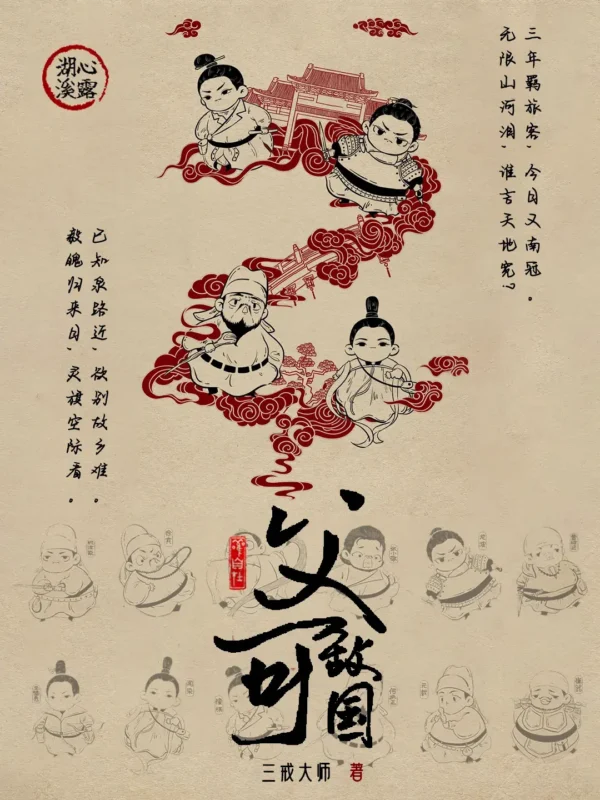 湖心
溪露
三年羁旅客，今日又南冠。
无限山河泪，谁言天地宽？
已知泉路近，欲别故乡难。
毅魄归来日，灵旗空际看。
父可敌国
三戒大师 著